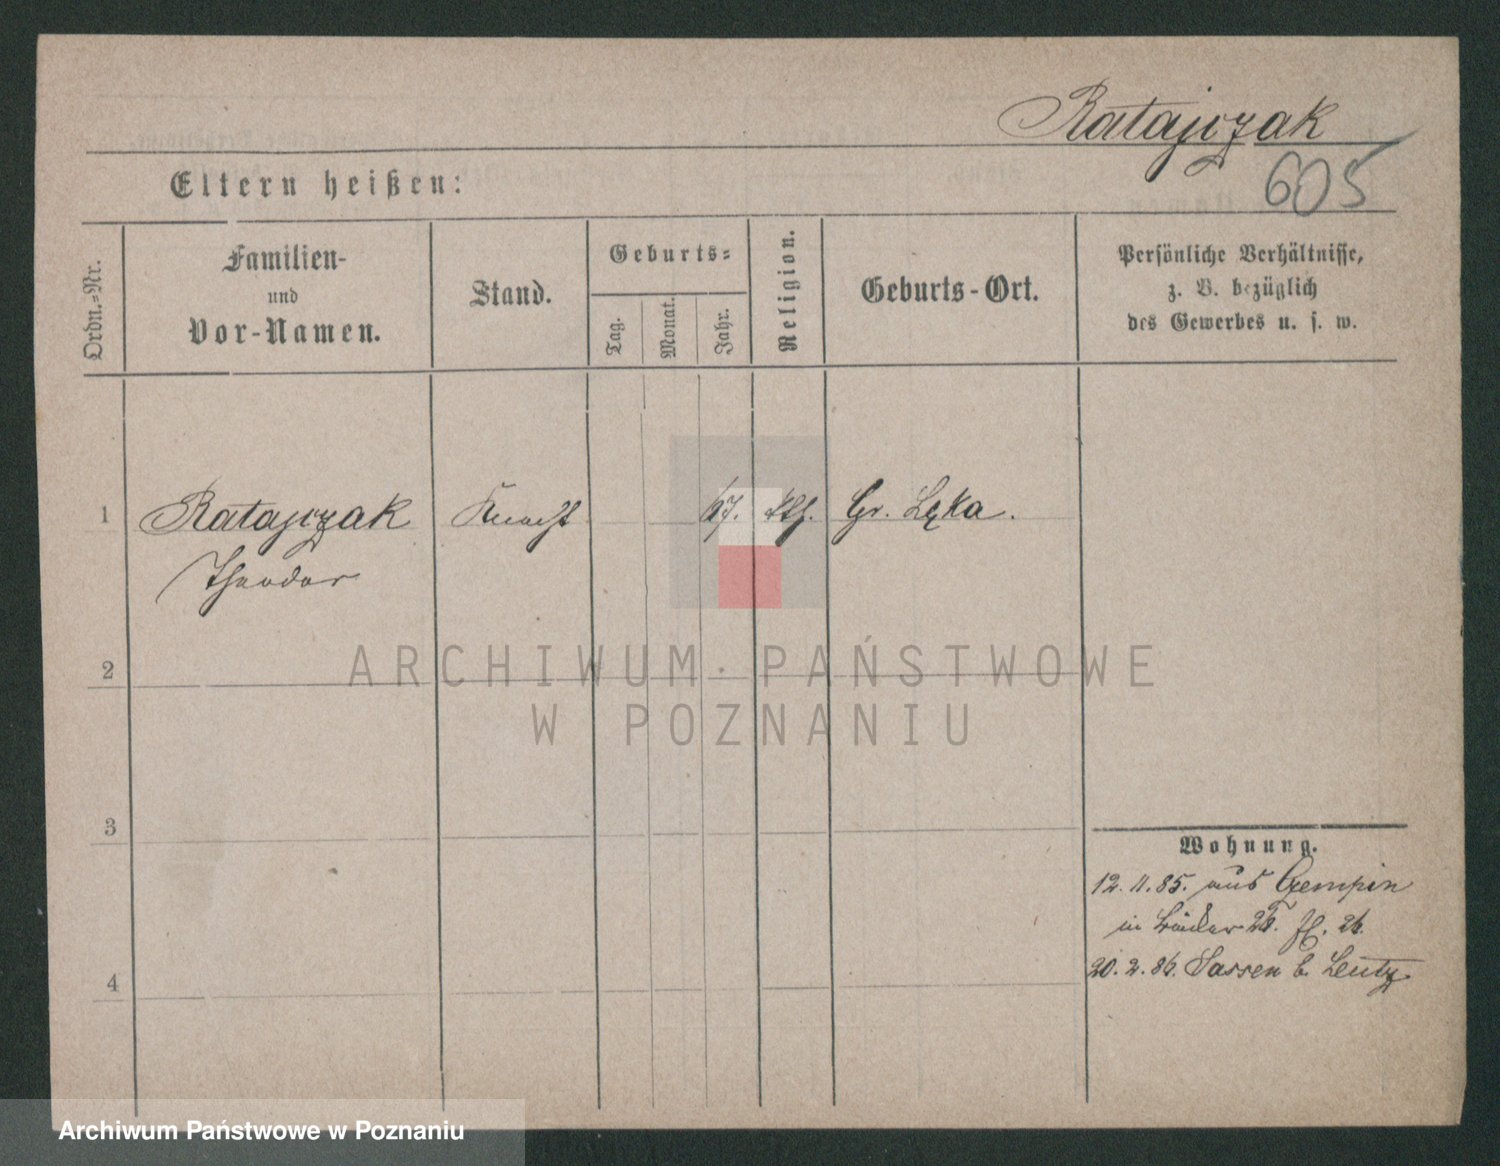 Ratajczak
605
Eltern heißen:
Ordn.=Nr.
Familien-
und
Vor-Namen.
Stand.
Geburts=
Tag.
Monat.
Jahr.
Religion.
Geburts-Ort.
Persönliche Verhältnisse,
z. B. bezüglich
des Gewerbes u. s. w.
1 Ratajczak Knecht 67. kth. Gr. Lęka.
Theodor
2
3
4
Wohnung.
12. 11. 85. aus Czempin
in 26.
20. 2. 86. Sassen b. Leutz
ARCHIWUM PAŃSTWOWE
W POZNANIU
Archiwum Państwowe w Poznaniu